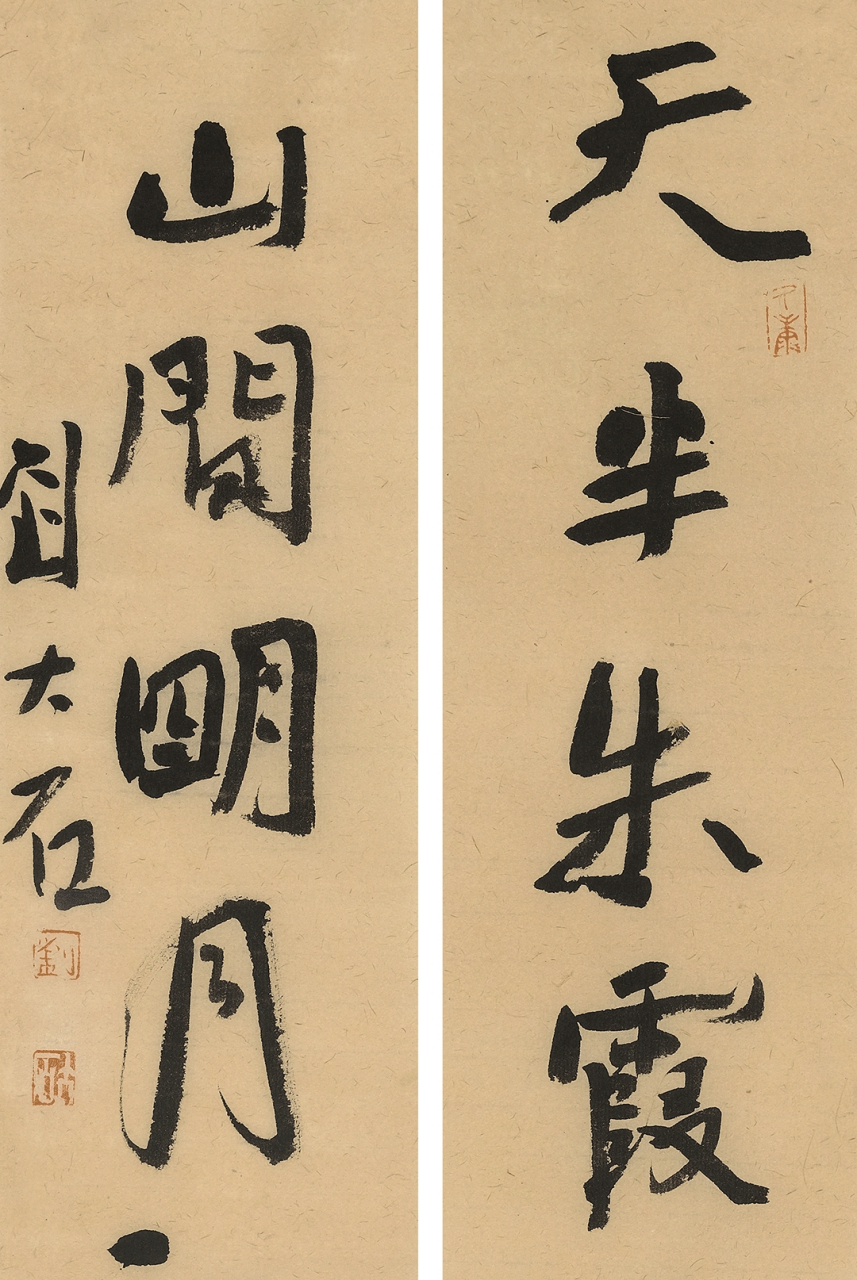 天半朱霞
山間明月
劉大石
劉